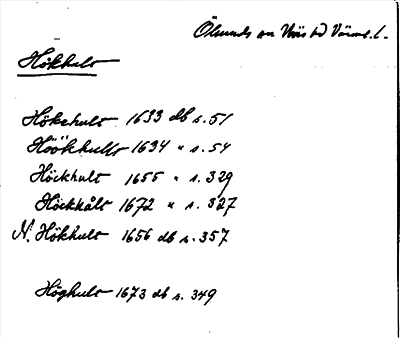 Ölserud sn Näs hd Värml. l.
Hökhult
Hökehult 1633 db s. 51
Höökhullt 1634 " s. 54
Höckhult 1655 " s. 329
Höckhålt 1672 " s. 327
N. Hökhult 1656 db s. 357
Höghult 1673 db s. 349